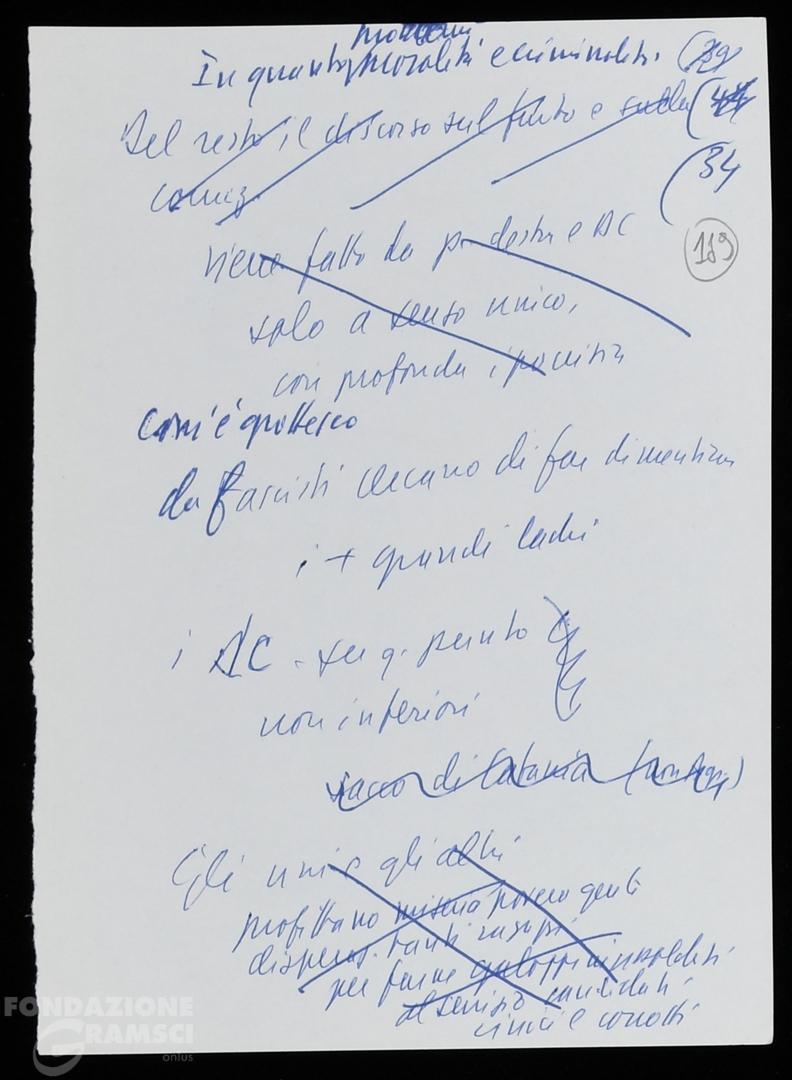 problemi
In quanto moralità e criminalità. (39
Del resto il discorso sul furto e sulla (44
corruz. (34
viene fatto da p. destra e DC (119)
solo a senso unico,
con profonda ipocrisia
Com'è grottesco
da fascisti cercano di far dimenticare
i + grandi ladri
i DC - su q. punto
non inferiori
sacco di Catania
Gli uni e gli altri
profittano miseria povera gente
disperaz. tanti ragazzi
per farne galoppini assoldati
al servizio candidati
cinici e corrotti
FONDAZIONE
GRAMSCI
onlus